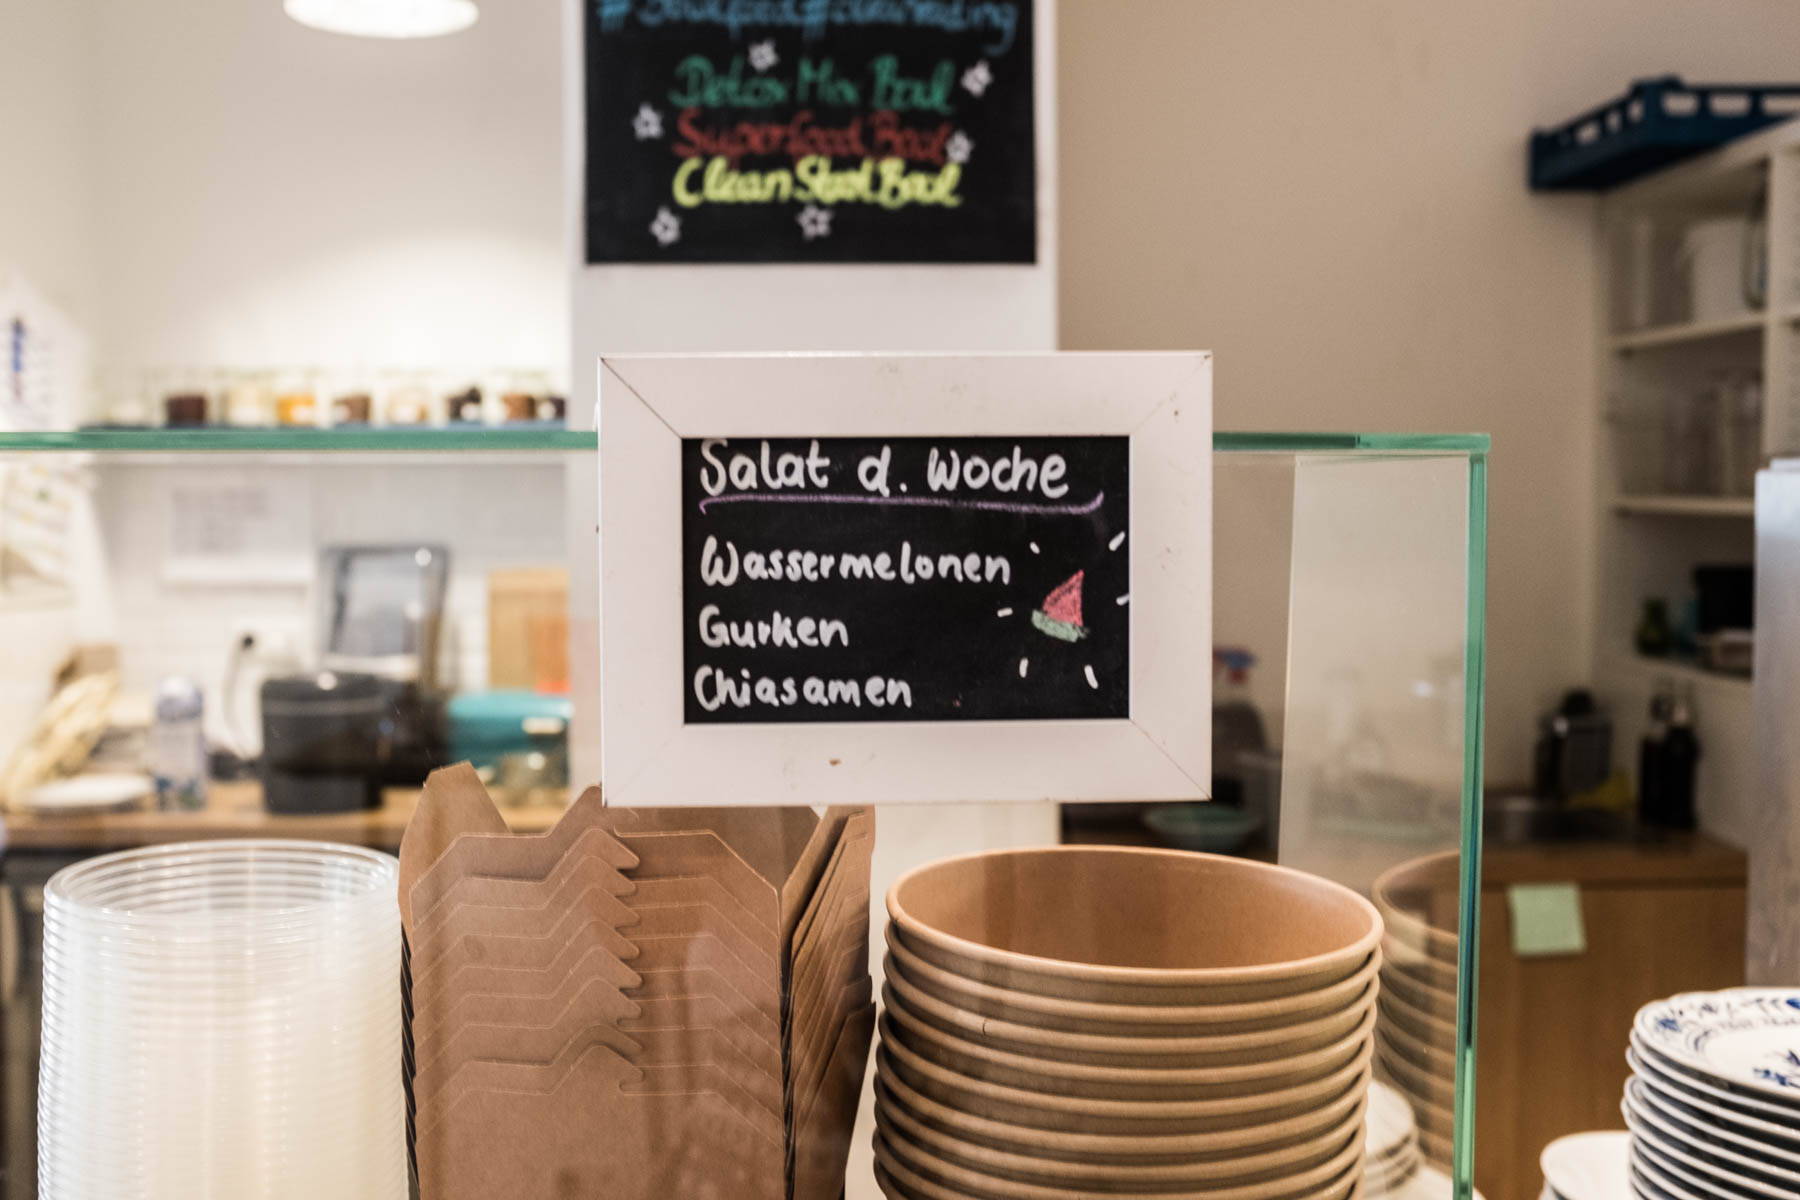 Detox Mix Bowl
Superfood Bowl
Clean Start Bowl
Salat d. Woche
Wassermelonen
Gurken
Chiasamen